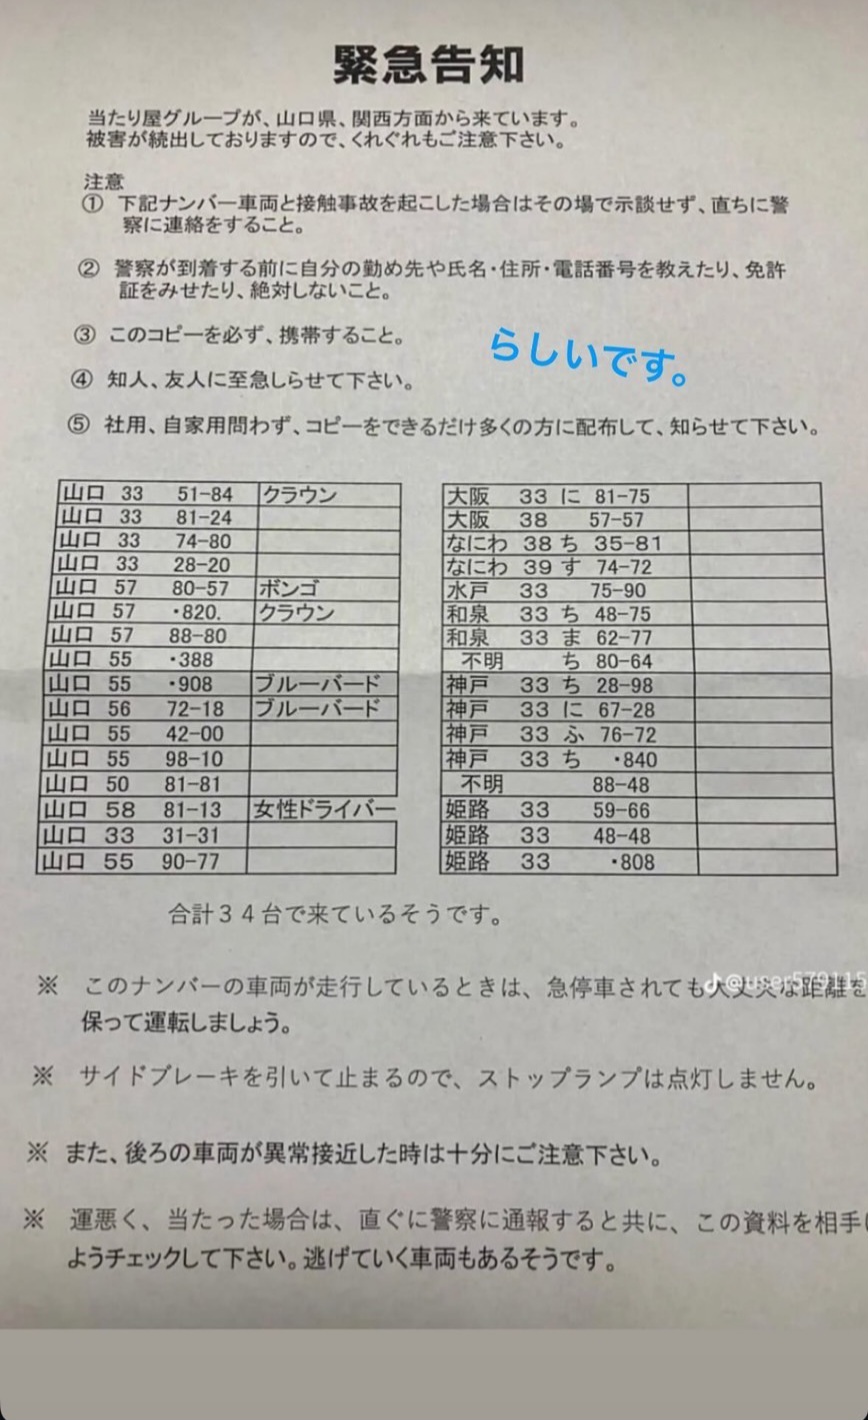 緊急告知
当たり屋グループが、山口県、関西方面から来ています。
被害が続出しておりますので、くれぐれもご注意下さい。
注意
① 下記ナンバー車両と接触事故を起こした場合はその場で示談せず、直ちに警
察に連絡をすること。
② 警察が到着する前に自分の勤め先や氏名・住所・電話番号を教えたり、免許
証をみせたり、絶対しないこと。
③ このコピーを必ず、携帯すること。
らしいです。
④ 知人、友人に至急しらせて下さい。
⑤ 社用、自家用問わず、コピーをできるだけ多くの方に配布して、知らせて下さい。
山口 33 51-84 クラウン
山口 33 81-24
山口 33 74-80
山口 33 28-20
山口 57 80-57 ボンゴ
山口 57 ・820. クラウン
山口 57 88-80
山口 55 ・388
山口 55 ・908 ブルーバード
山口 56 72-18 ブルーバード
山口 55 42-00
山口 55 98-10
山口 50 81-81
山口 58 81-13 女性ドライバー
山口 33 31-31
山口 55 90-77
大阪 33 に 81-75
大阪 38 57-57
なにわ 38 ち 35-81
なにわ 39 す 74-72
水戸 33 75-90
和泉 33 ち 48-75
和泉 33 ま 62-77
不明 ち 80-64
神戸 33 ち 28-98
神戸 33 に 67-28
神戸 33 ふ 76-72
神戸 33 ち ・840
不明 88-48
姫路 33 59-66
姫路 33 48-48
姫路 33 ・808
合計34台で来ているそうです。
※ このナンバーの車両が走行しているときは、急停車されても大丈夫な距離を
@user579115
保って運転しましょう。
※ サイドブレーキを引いて止まるので、ストップランプは点灯しません。
※ また、後ろの車両が異常接近した時は十分にご注意下さい。
※ 運悪く、当たった場合は、直ぐに警察に通報すると共に、この資料を相手に
ようチェックして下さい。逃げていく車両もあるそうです。